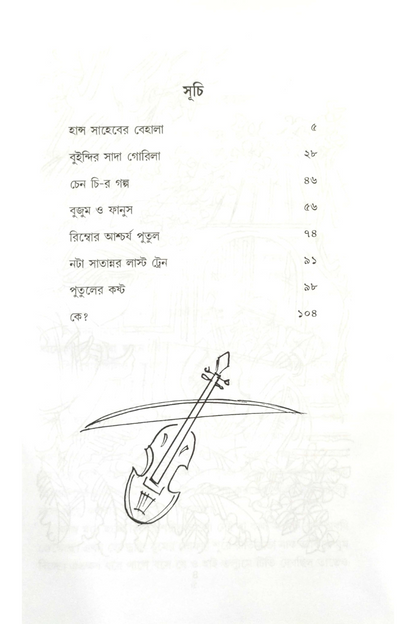 সূচি
হান্স সাহেবের বেহালা ৫
বুইন্দির সাদা গোরিলা ২৮
চেন চি-র গল্প ৪৬
বুজুম ও ফানুস ৫৬
রিম্বোর আশ্চর্য পুতুল ৭৪
নটা সাতান্নর লাস্ট ট্রেন ৯১
পুতুলের কষ্ট ৯৮
কে? ১০৪